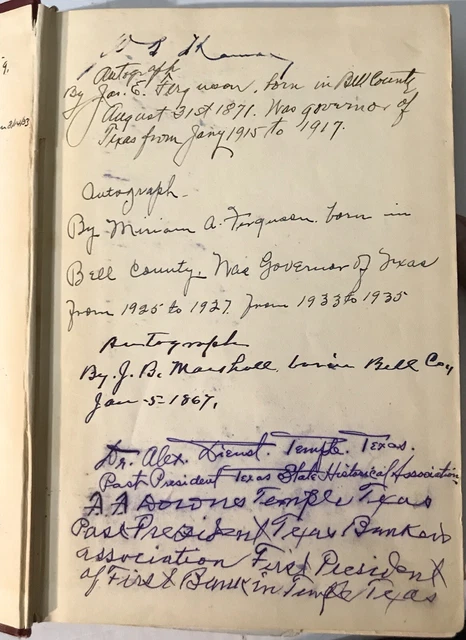 9.
Autograph
By Jas. E. Ferguson, born in Bell County
August 31st 1871. Was governor of
Texas from Jany 1915 to 1917.
Autograph-
By Miriam A. Ferguson, born in
Bell County. Was Governor of Texas
from 1925 to 1927. from 1933 to 1935
Autograph
By. J. B. Marshall, born in Bell Co,
Jan-5-1867.
Dr. Alex. Dienst. Temple. Texas.
Past President Texas State Historical Association
A A Downs Temple Texas
Past President Texas Bankers
association First President
of First Bank in Temple Texas